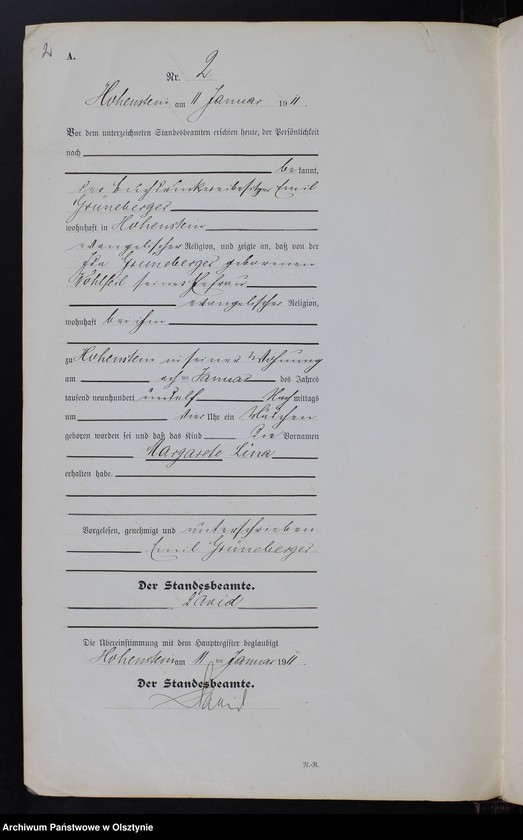 2
A.
Nr. 2
Hohenstein am 11 Januar 1911.
Vor dem unterzeichneten Standesbeamten erschien heute, der Persönlichkeit
nach
bekannt,
der Buchdruckereibesitzer Emil
Grüneberger
wohnhaft in Hohenstein
evangelischer Religion, und zeigte an, daß von der
Grüneberger geborenen
Wohlfeil seiner Ehefrau
evangelischer Religion,
wohnhaft bei ihm
zu Hohenstein in seiner Wohnung
am acht ten Januar des Jahres
tausend neunhundert undelf Nachmittags
um Uhr ein Mädchen
geboren worden sei und daß das Kind die Vornamen
Margarete Lina
erhalten habe.
Vorgelesen, genehmigt und unterschrieben
Emil Grüneberger
Der Standesbeamte.
David
Die Übereinstimmung mit dem Hauptregister beglaubigt
Hohenstein am 11 ten Januar 1911.
Der Standesbeamte.
David
N.-R.
Archiwum Państwowe w Olsztynie